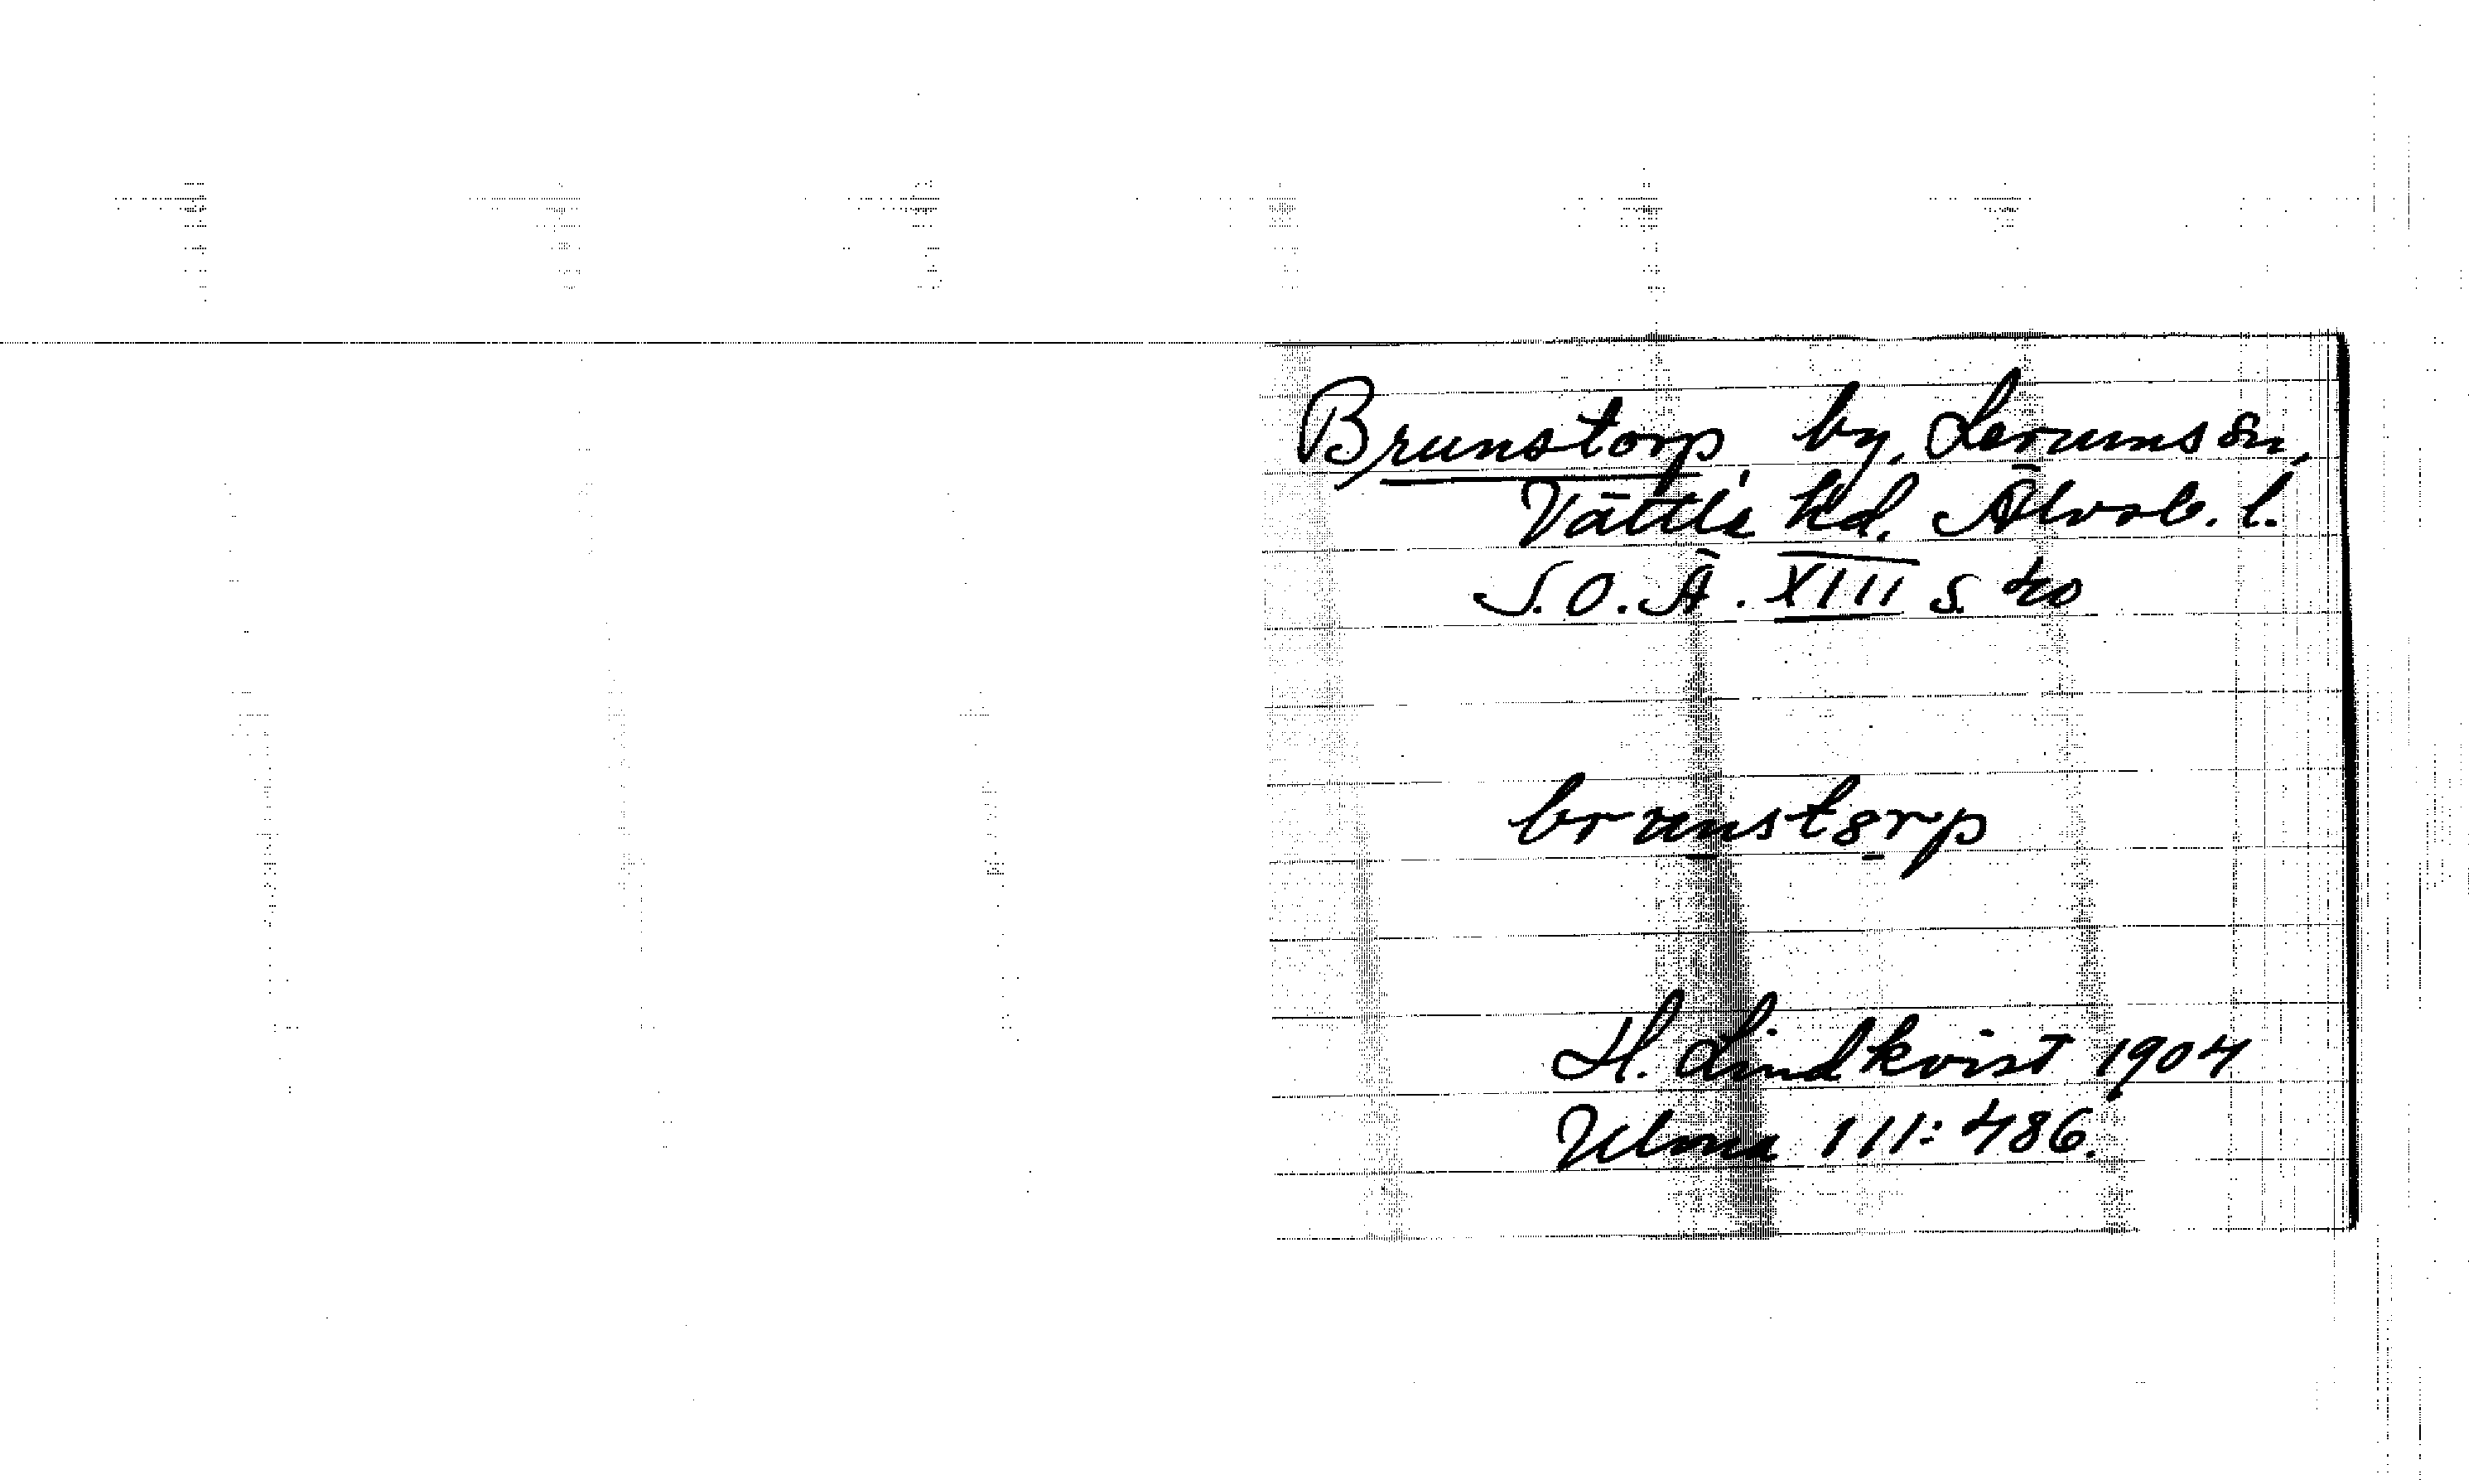 Brunstorp, by, Lerums sn,
Vättle hd. Älvsb. l.
S.O.Ä. XIII s. 40
brunstorp
H. Lindkvist 1904
Ulma 111: 486.